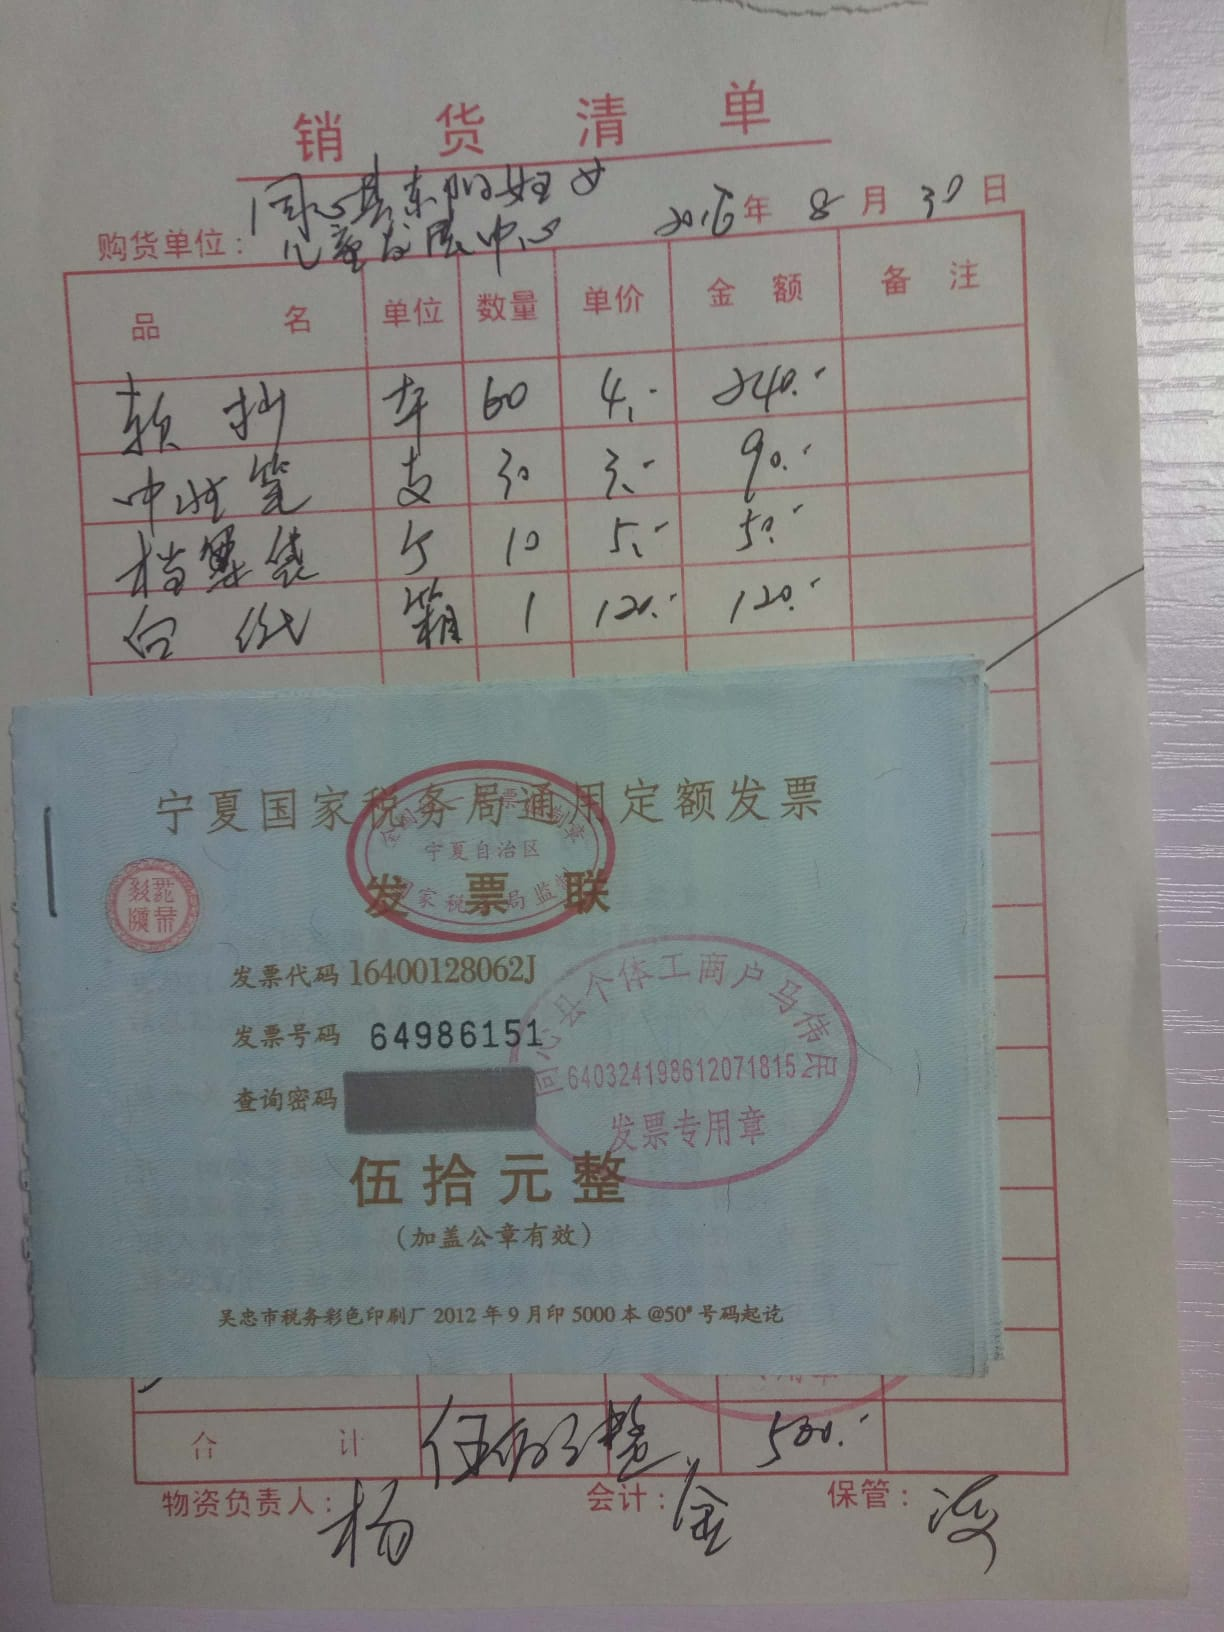 销货清单
购货单位：同心县东阳妇女儿童发展中心 2016年8月30日
品名 单位 数量 单价 金额 备注
软抄 本 60 4.- 240.-
中性笔 支 30 3.- 90.-
档案袋 个 10 5.- 50.-
白纸 箱 1 120.- 120.-
宁夏国家税务局通用定额发票
宁夏自治区
发票联
发票代码 16400128062J
发票号码 64986151
同心县个体工商户马伟
640324198612071815
发票专用章
查询密码
伍拾元整
（加盖公章有效）
吴忠市税务彩色印刷厂 2012 年 9 月印 5000 本 @50# 号码起讫
合计 伍佰元整 500.-
物资负责人：杨 会计：金 保管：